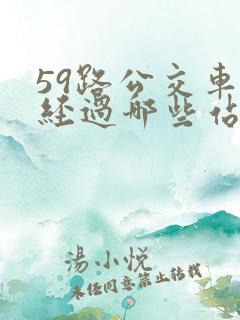 59路公交車
經過哪些佔
湯小悅
未任同意禁止转载